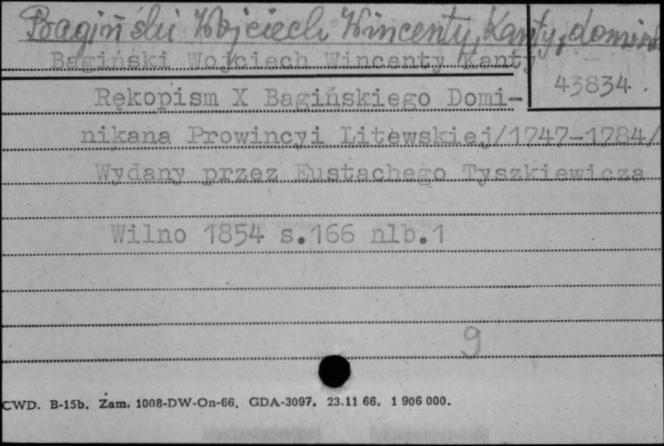 Bagiński Wojciech Wincenty, Kanty, domin
Bagiński Wojciech Wincenty Kanty
43834.
Rękopism X Bagińskiego Domi-
nikana Prowincyi Litewskiej/1747-1784/
Wydany przez Eustachego Tyszkiewicza
Wilno 1854 s.166 nlb.1
9
CWD. B-15b. Zam. 1008-DW-On-66. GDA-3097. 23.11 66. 1 906 000.